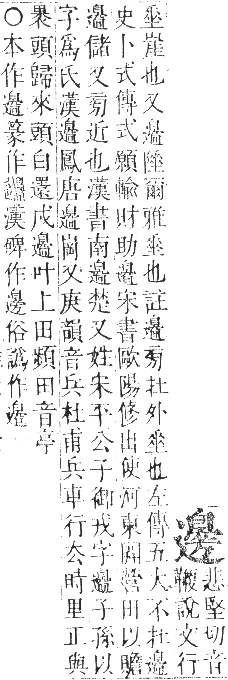 邊
悲堅切音
鞭說文行
垂崖也又邊陲爾雅垂也註邊旁在外垂也左傳五大不在邊
史卜式傳式願輸財助邊宋書歐陽修出使河東開營田以贍
邊儲又旁近也漢書南邊楚又姓宋平公子御戎字邊子孫以
字爲氏漢邊鳳唐邊岡又庚韻音兵杜甫兵車行去時里正與
裹頭歸來頭白還戍邊叶上田頻田音亭
〇本作邊篆作漢碑作邊俗譌作